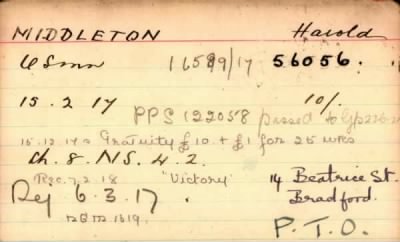 MIDDLETON Harold
16589/17 56056.
15.2.17 10/-
PPS 122058 passed to
15.12.17 = Gratuity £10 + £1 for 25 wks
Ch. 8. NS. 4. 2.
Rec. 7.2.18 "Victory" 14 Beatrice St.
Dej 6.3.17. Bradford.
P.T.O.